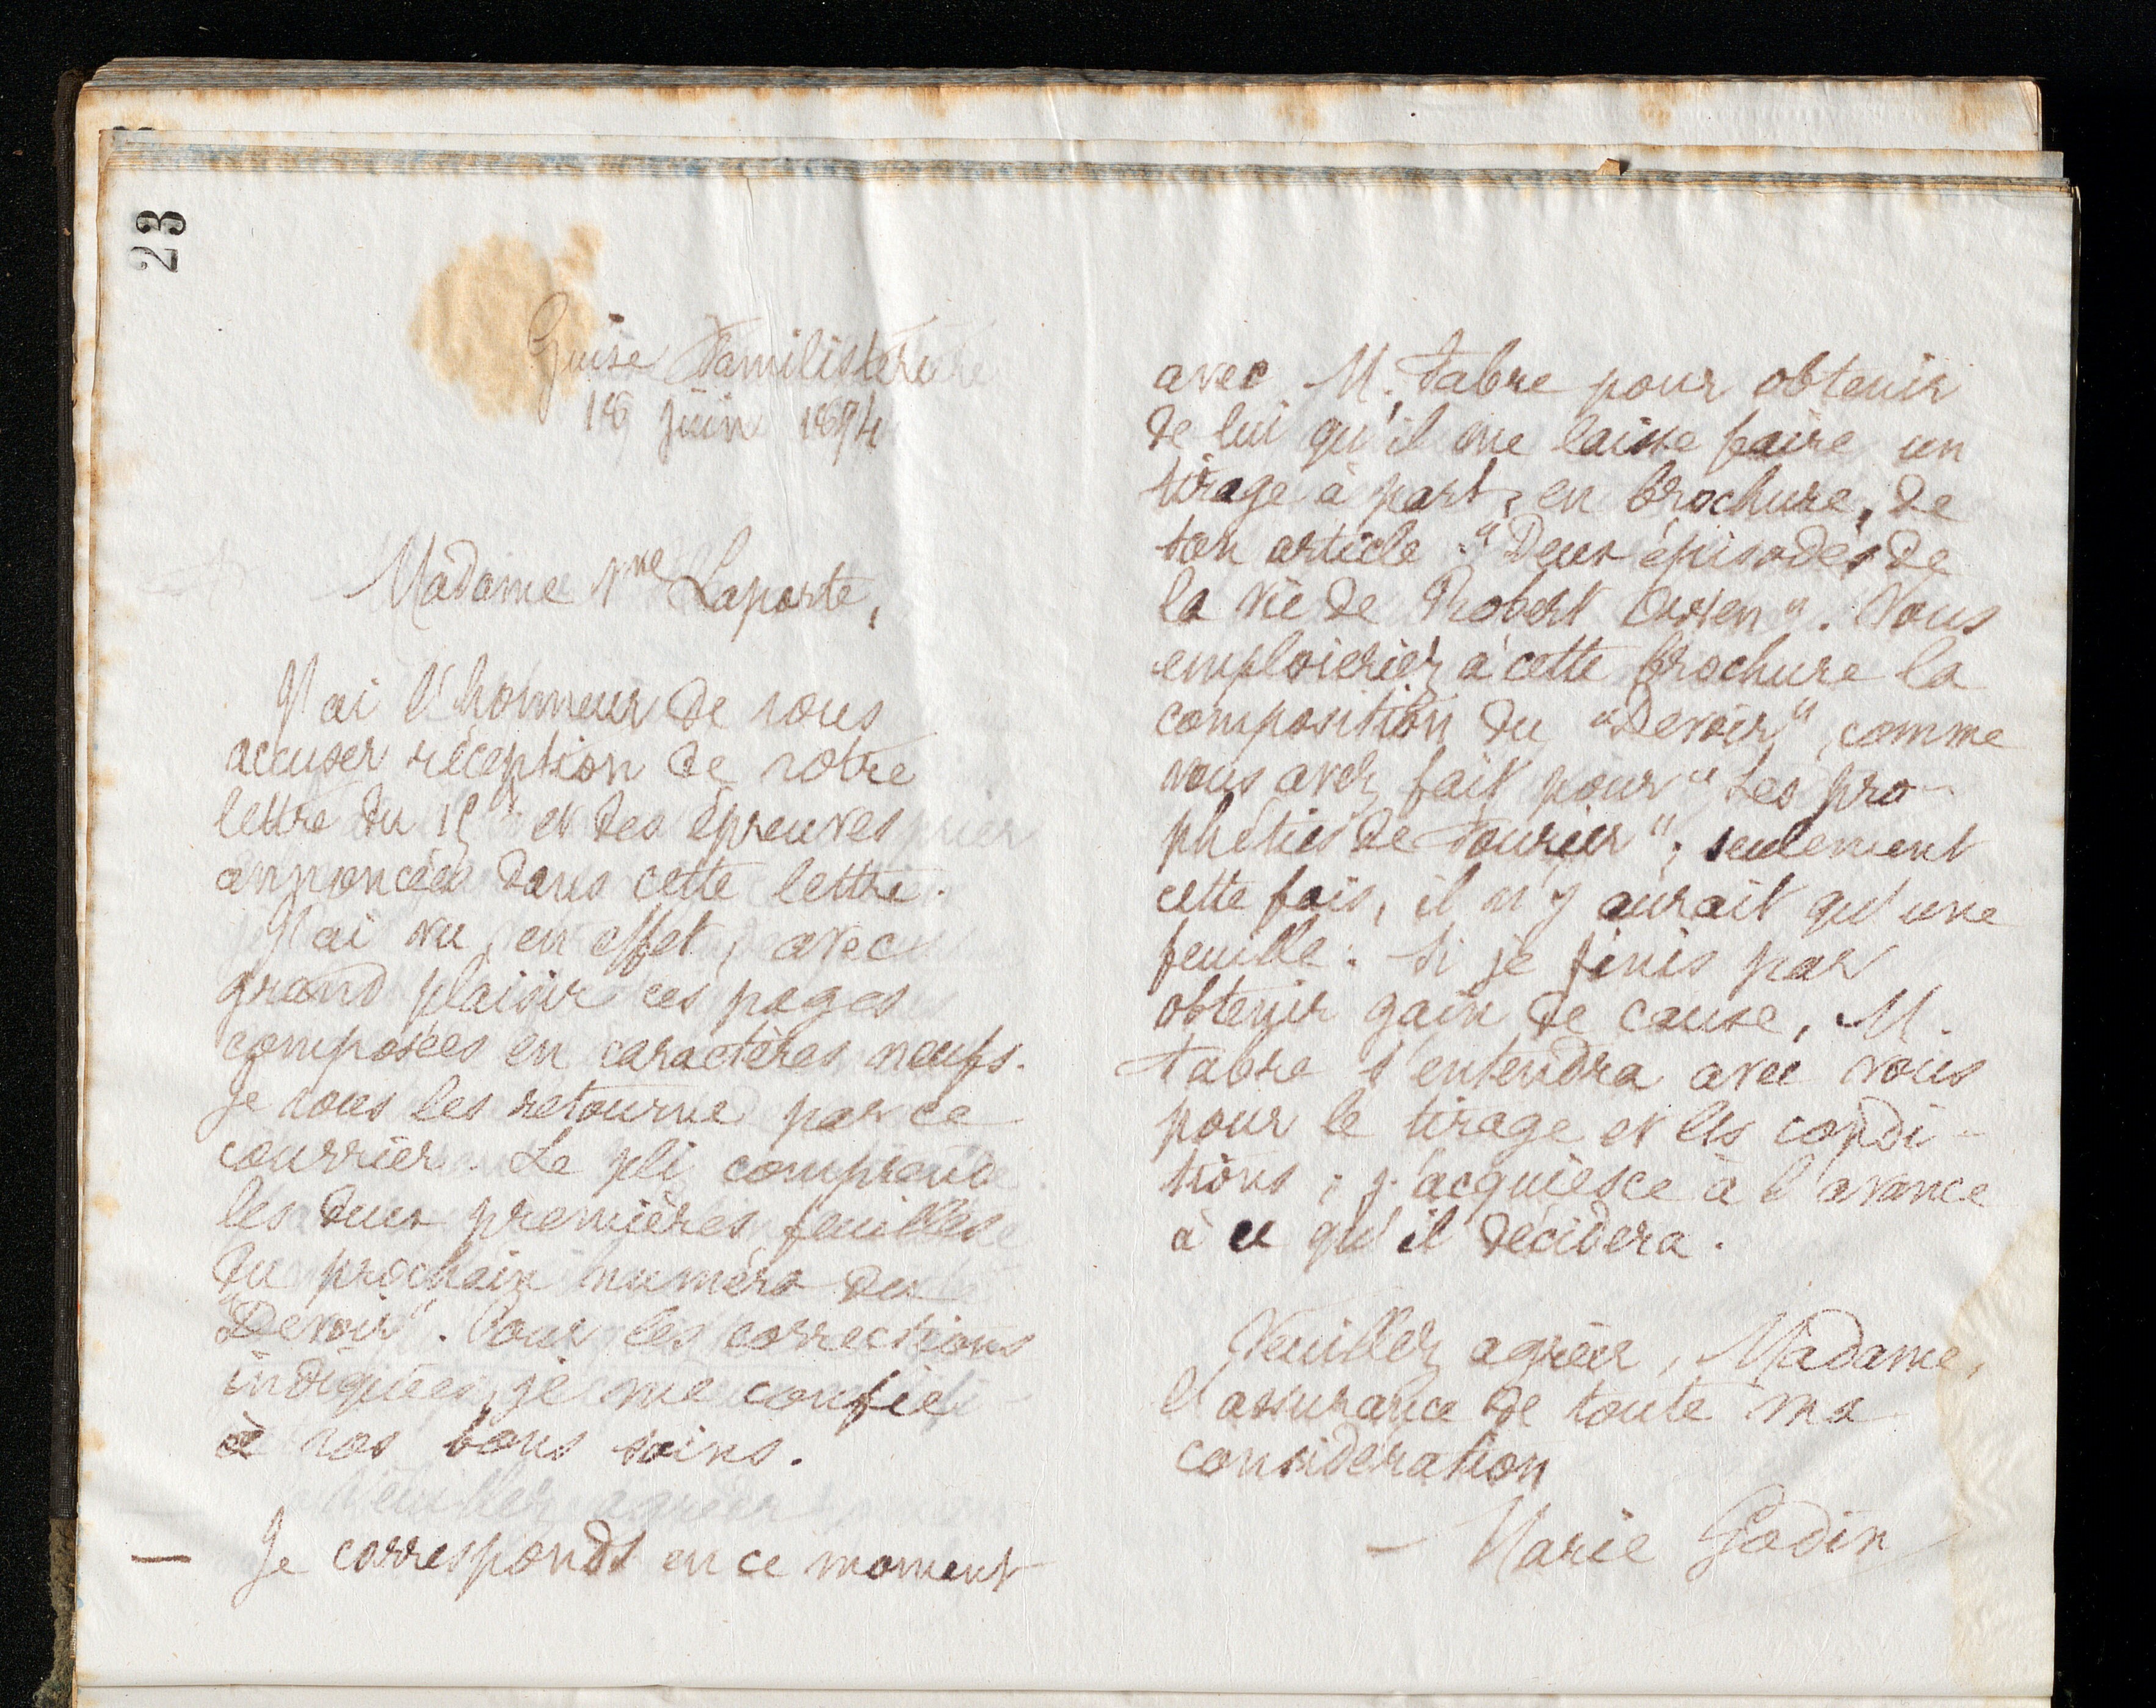 23
Guise Familistère
18 juin 1894
Madame Vve Laporte,
J'ai l'honneur de vous
accuser réception de votre
lettre du 15 et des épreuves
annoncées dans cette lettre.
J'ai vu, en effet, avec
grand plaisir ces pages
composées en caractères neufs.
Je vous les retourne par ce
courrier. Le pli comprend
les deux premières feuilles
du prochain numéro du
"Devoir". Pour les corrections
indiquées, je me confie
à vos bons soins.
— Je corresponds en ce moment
avec M. Fabre pour obtenir
de lui qu'il me laisse faire un
tirage à part, en brochure, de
son article "Deux épisodes de
la vie de Robert Owen". Vous
emploieriez à cette brochure la
composition du "Devoir", comme
vous avez fait pour "Les pro-
phéties de Fourier"; seulement
cette fois, il n'y aurait qu'une
feuille. Si je finis par
obtenir gain de cause, M.
Fabre s'entendra avec vous
pour le tirage et les condi-
tions; j'acquiesce à l'avance
à ce qu'il décidera.
Veuillez agréer, Madame,
l'assurance de toute ma
considération
— Marie Godin